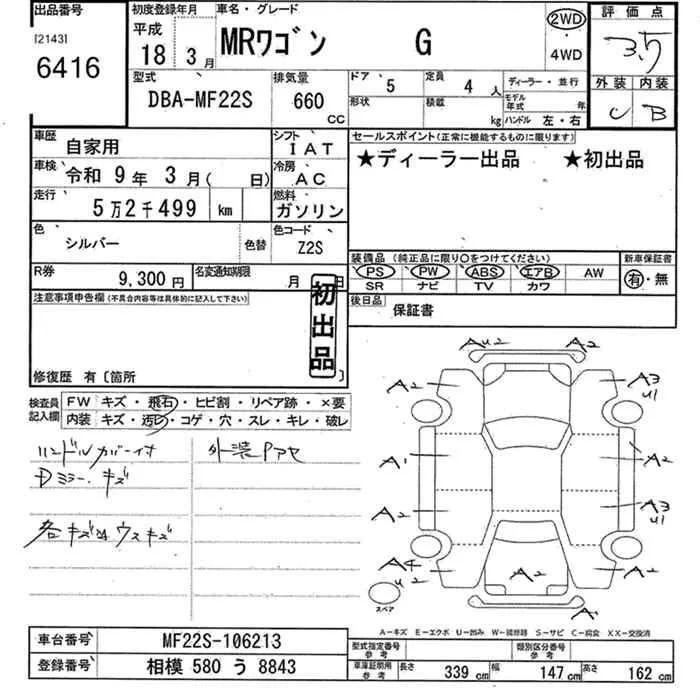 出品番号
[2143]
6416
初度登録年月
平成
18年 3月
車名・グレード
MRワゴン G
2WD
・
4WD
評価点
3.5
外装 内装
C B
型式
DBA-MF22S
排気量
660
CC
ドア 5
形状
定員 4 人
積載 kg
ディーラー・並行
モデル年式 年
ハンドル 左・右
車歴
自家用
シフト
IAT
車検
令和 9年 3月( 日)
冷房
AC
走行
5万2千499 km
燃料
ガソリン
色
シルバー
色替
色コード
Z2S
R券
9,300円
名変通知期限
月 日
セールスポイント(正常に機能するものに限ります)
★ディーラー出品 ★初出品
装備品 (純正品に限り○をつけてください)
PS PW ABS エアB AW
SR ナビ TV カワ
新車保証書
有・無
後日品
保証書
注意事項申告欄(不具合内容等は具体的に記入して下さい)
初出品
修復歴 有〔箇所
検査員記入欄
FW キズ・飛石・ヒビ割・リペア跡・×要
内装 キズ・汚レ・コゲ・穴・スレ・キレ・破レ
ハンドルカバー付
Dミラーキズ
外装Pアセ
各キズ凹ウスキズ
AU2 A2
A2 A3
U1
A1 A2
A2 A3
U1
A4
U2 A2
A1
スペア
A-キズ E-エクボ U-凹み W-補修跡 S-サビ C-腐食 XX-交換済
車台番号 MF22S-106213
登録番号 相模 580 う 8843
型式指定番号
参考
類別区分番号
参考
車庫証明用
参考
長さ 339 cm 幅 147 cm 高さ 162 cm